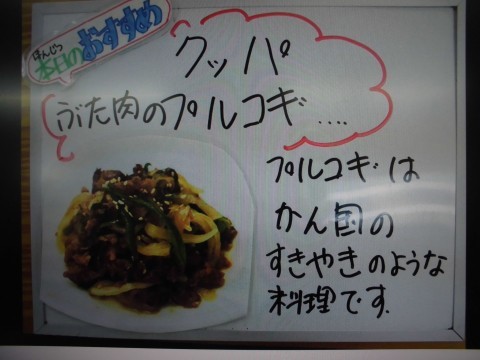 ほんじつ
本日のおすすめ
クッパ
ぶた肉のプルコギ....
プルコギは
かん国の
すきやきのような
料理です.